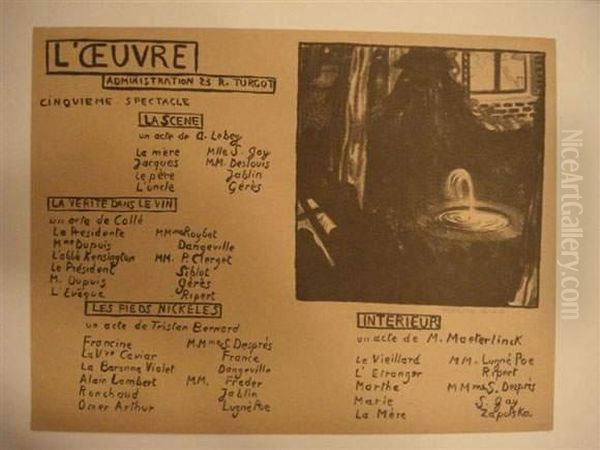 L'ŒUVRE
ADMINISTRATION 23 R. TURGOT
CINQUIEME SPECTACLE
LA SCENE
un acte de A. Lebey
La mère Mlle S. Gay
Jacques MM. Deslouis
Le père Jablin
L'oncle Gérès
LA VERITE DANS LE VIN
un acte de Collé
La Présidente MMmes Roybet
Mme Dupuis Dangeville
L'abbé Kensington MM. P. Clerget
Le Président Siblot
M. Dupuis Gérès
L'Evêque Ripert
LES PIEDS NICKELES
un acte de Tristan Bernard
Francine MMmes S. Desprès
La Vve Caviar France
La Baronne Violet Dangeville
Alain Lambert MM. Freder
Ronchaud Jablin
Omer Arthur Lugné Poe
INTERIEUR
un acte de M. Maeterlinck
Le Vieillard MM. Lugné Poe
L'Etranger Ripert
Marthe MMmes S. Desprès
Marie S. Gay
La Mère Zapolska
NiceArtGallery.com